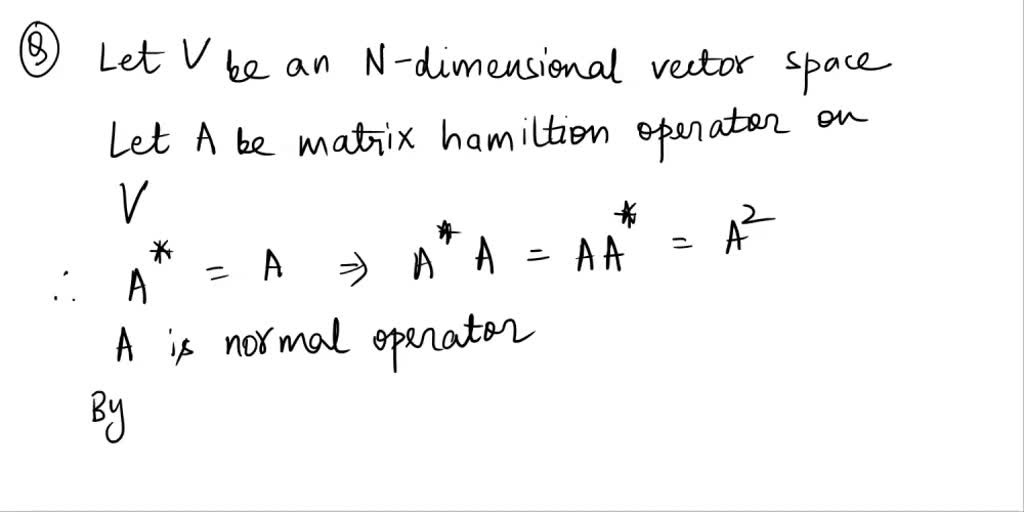 Q Let V be an N-dimensional vector space
Let A be matrix hamiltion operator on
V
∴ A* = A ⇒ A* A = AA* = A²
A is normal operator
By